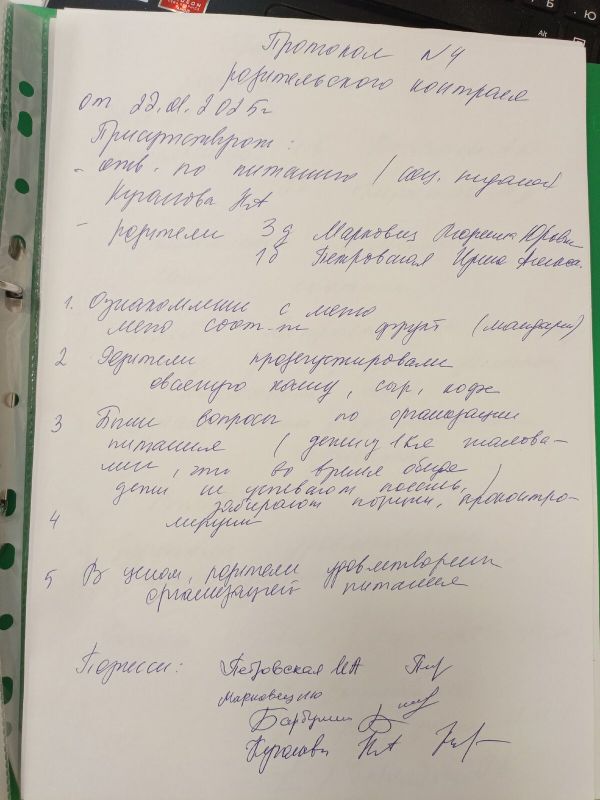 Протокол N 4
родительского контроля
от 22.01.2025г
Присутствуют:
- отв. по питанию / соц. педагог
НА
- родители 3д Марковец Юрьев
1б Петровская Ирина
1. Ознакомление с меню
меню соот-т фрукт (мандарин)
2 Родители продегустировали
овсяную кашу, сыр, кофе
3 Были вопросы по организации
питания ( дети 1 кл жалова-
лись, что во время обеда
дети не успевают поесть,)
забирают порции, проконтро-
4 лируем
5 В целом, родители удовлетворены
организацией питания
Подписи: Петровская ИА
Марковец ИЮ
НА